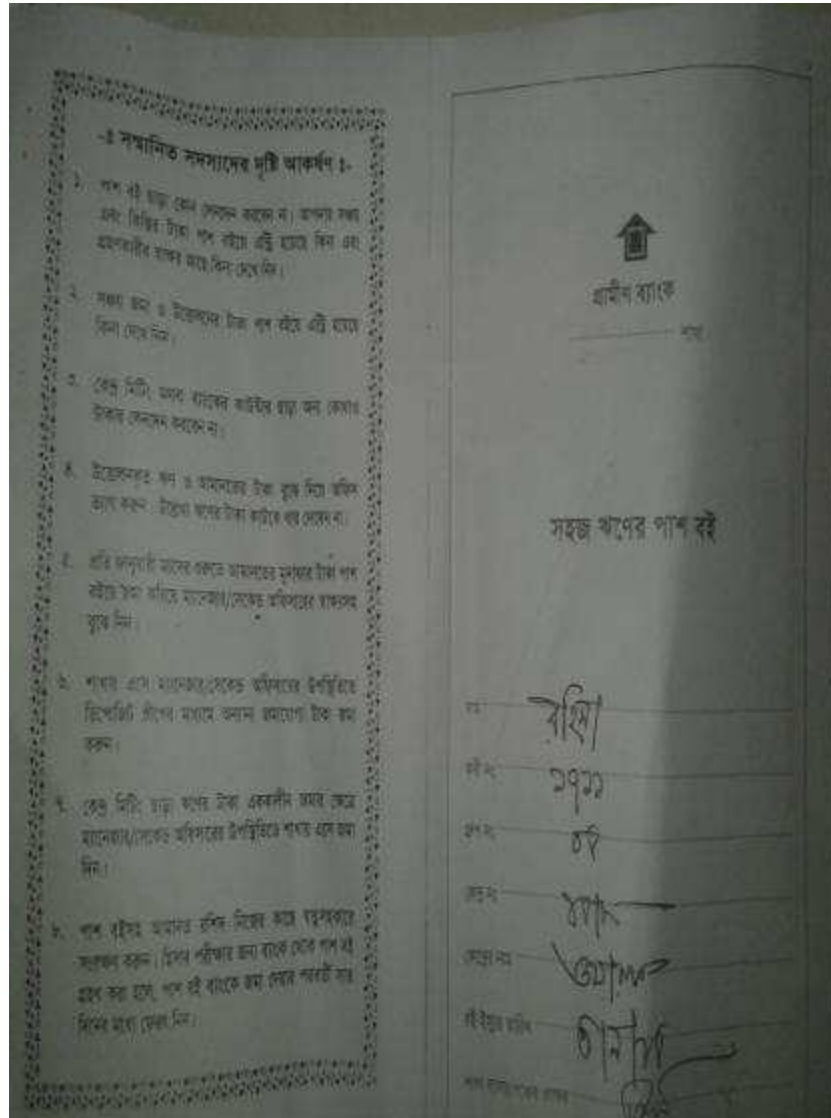 -ঃ সম্মানিত সদস্যদের দৃষ্টি আকর্ষণ ঃ-
১. পাশ বই ছাড়া কোন লেনদেন করবেন না। আপনার সঞ্চয়
এবং কিস্তির টাকা পাশ বইয়ে এন্ট্রি হয়েছে কিনা এবং
গ্রহণকারীর স্বাক্ষর আছে কিনা দেখে নিন।
২. সঞ্চয় জমা ও উত্তোলনের টাকা পাশ বইয়ে এন্ট্রি হয়েছে
কিনা দেখে নিন।
৩. কেন্দ্র মিটিং অথবা ব্যাংকের কাউন্টার ছাড়া অন্য কোথাও
টাকার লেনদেন করবেন না।
৪. উত্তোলনকৃত ঋণ ও আমানতের টাকা বুঝে নিয়ে অফিস
ত্যাগ করুন। উত্তোলিত ঋণের টাকা কাউকে ধার দেবেন না।
৫. প্রতি জানুয়ারী মাসের শুরুতে আমানতের মুনাফার টাকা পাশ
বইয়ে জমা করিয়ে ম্যানেজার/সেকেন্ড অফিসারের স্বাক্ষরসহ
বুঝে নিন।
৬. শাখায় এসে ম্যানেজার/সেকেন্ড অফিসারের উপস্থিতিতে
ডিপোজিট স্লীপের মাধ্যমে অন্যান্য জমাযোগ্য টাকা জমা
করুন।
৭. কেন্দ্র মিটিং ছাড়া ঋণের টাকা এককালীন জমার ক্ষেত্রে
ম্যানেজার/সেকেন্ড অফিসারের উপস্থিতিতে শাখায় এসে জমা
দিন।
৮. পাশ বইসহ আমানত রশিদ নিজের কাছে যত্নসহকারে
সংরক্ষণ করুন। হিসাব পরীক্ষার জন্য ব্যাংক থেকে পাশ বই
গ্রহণ করা হলে, পাশ বই ব্যাংকে জমা দেয়ার পরবর্তী সাত
দিনের মধ্যে ফেরৎ নিন।
গ্রামীণ ব্যাংক
শাখা
সহজ ঋণের পাশ বই
নাম
ঋণী নং ১৭১১
গ্রুপ নং
কেন্দ্র নং
কেন্দ্রের নাম
বই ইস্যুর তারিখ